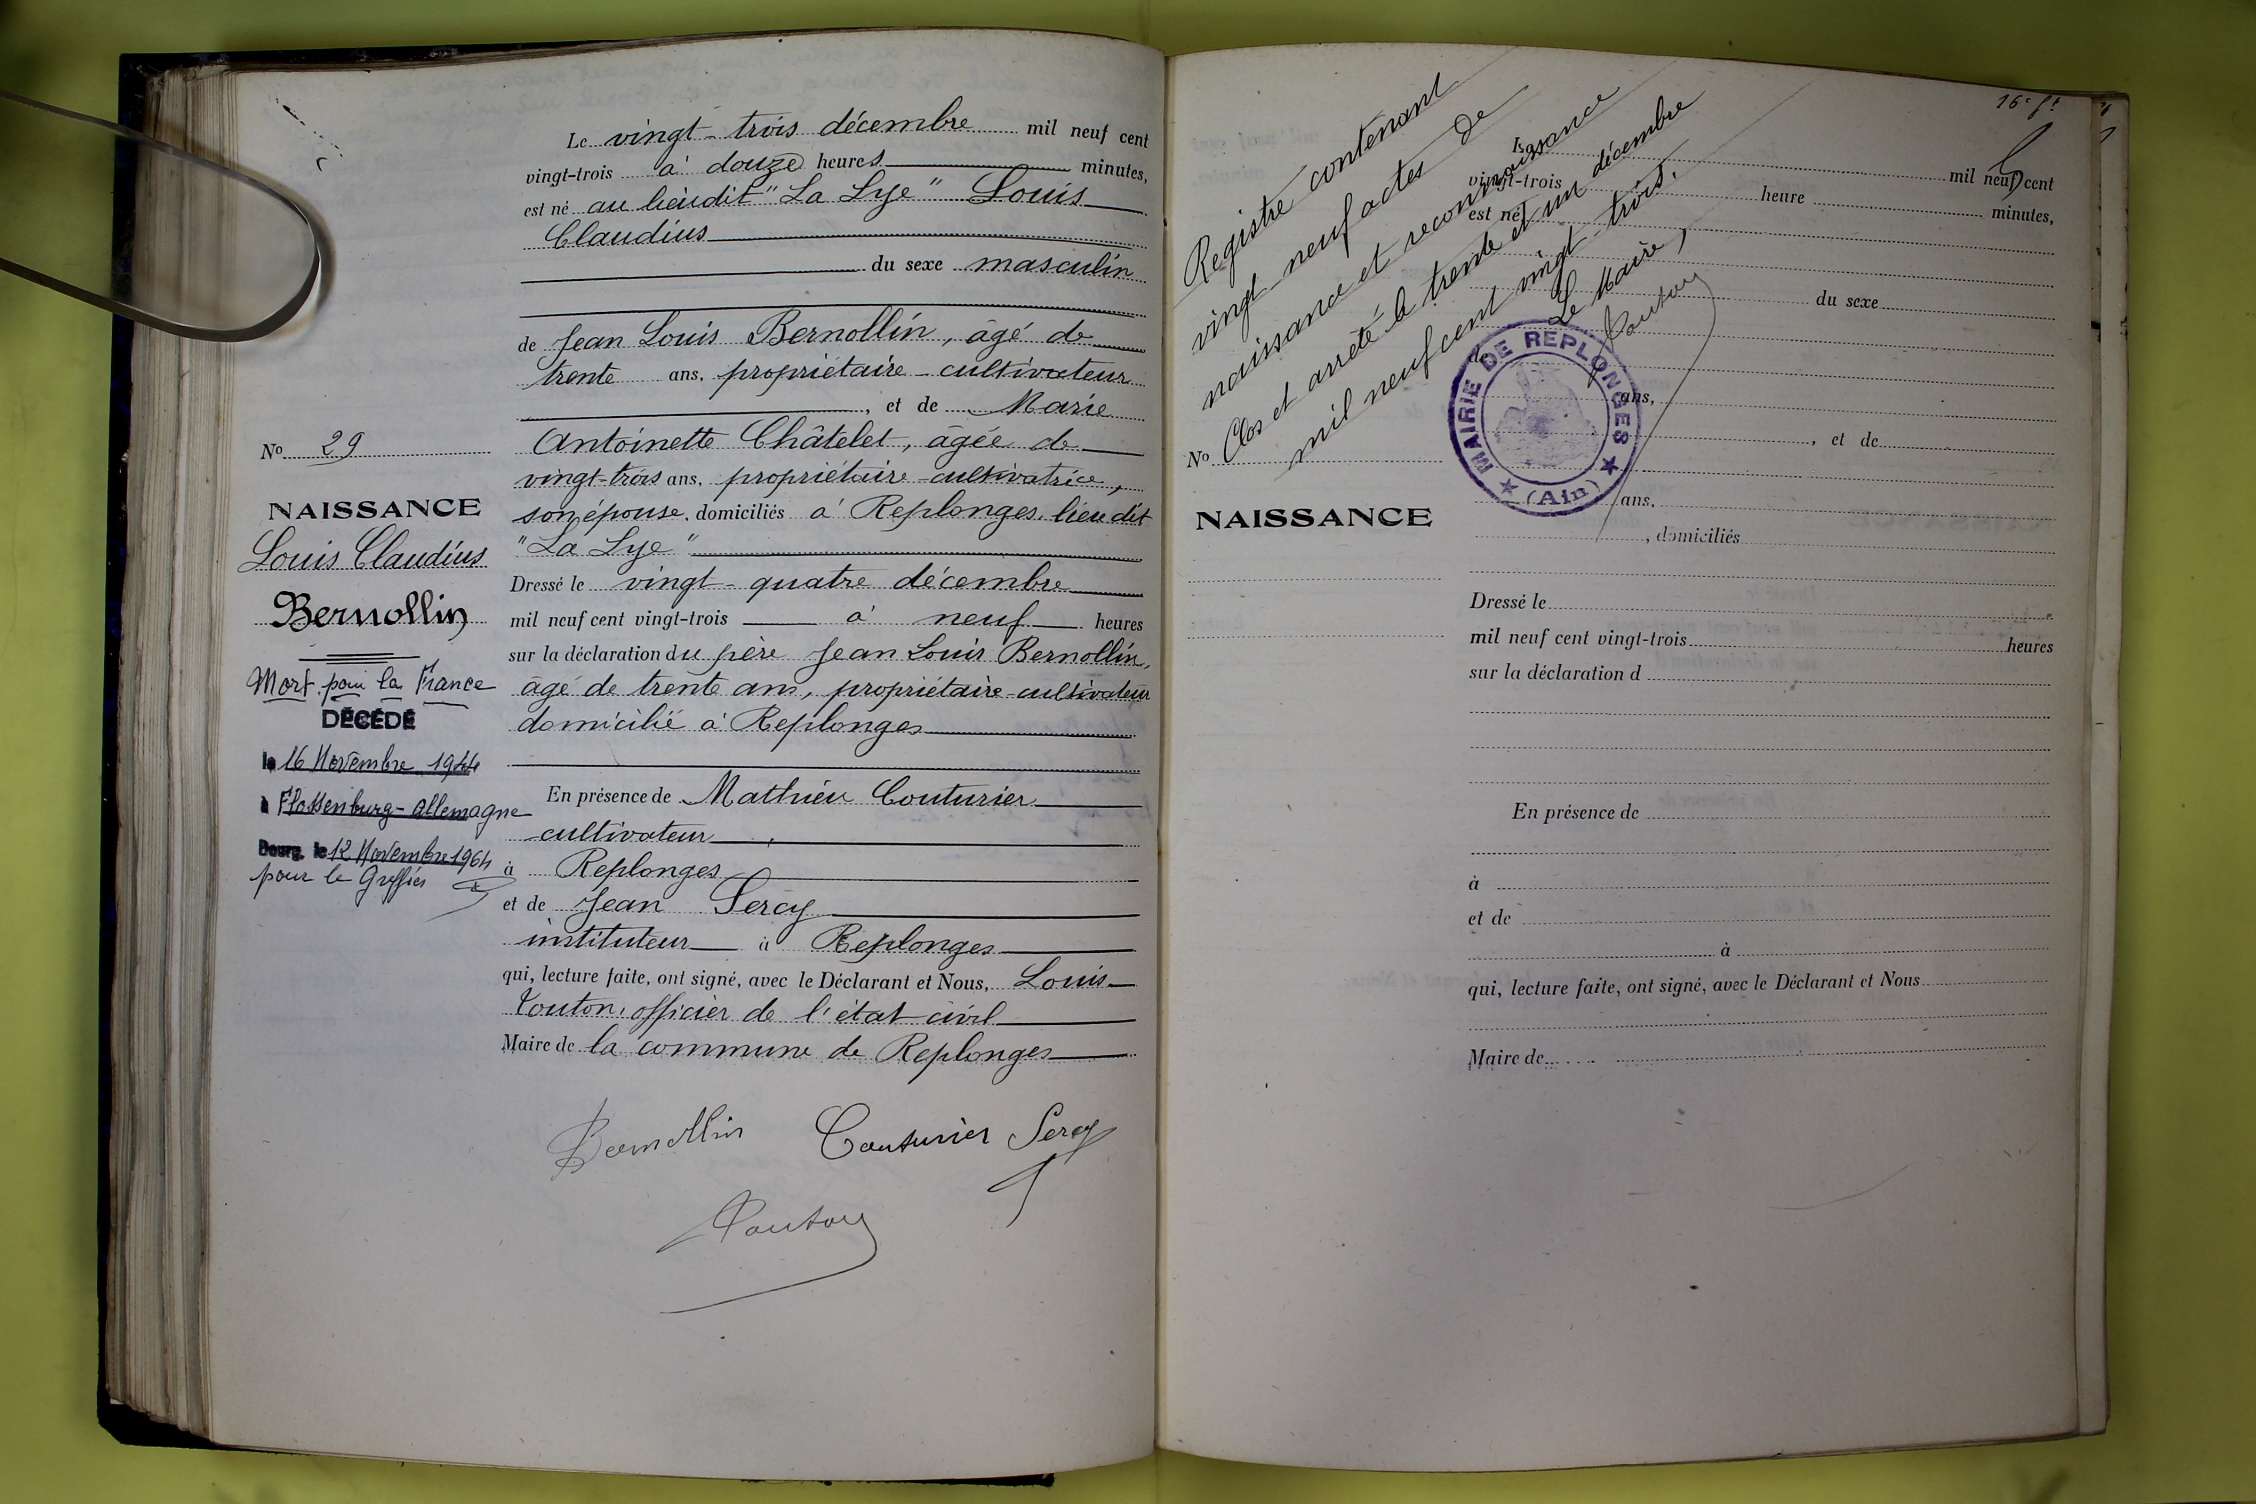 Le vingt-trois décembre mil neuf cent
vingt-trois à douze heures minutes,
est né au lieudit "La Lye" Louis
Claudius
du sexe masculin
de Jean Louis Bernollin, âgé de
trente ans, propriétaire-cultivateur
, et de Marie
Antoinette Châtelet, âgée de
vingt-trois ans, propriétaire-cultivatrice,
son épouse, domiciliés à Replonges lieu dit
"La Lye"
Dressé le vingt-quatre décembre
mil neuf cent vingt-trois à neuf heures
sur la déclaration du père Jean Louis Bernollin,
âgé de trente ans, propriétaire-cultivateur
domicilié à Replonges
En présence de Mathieu Couturier
cultivateur,
à Replonges
et de Jean Sercy
instituteur à Replonges
qui, lecture faite, ont signé, avec le Déclarant et Nous, Louis
Touton, officier de l'état civil
Maire de la commune de Replonges
Bernollin Couturier Sercy
Touton
No 29
NAISSANCE
Louis Claudius
Bernollin
Mort pour la France
DÉCÉDÉ
le 16 Novembre 1944
à Flossenburg-Allemagne
Bourg, le 12 Novembre 1964
pour le Greffier
16e ft
Registre contenant
vingt-neuf actes de
naissance et reconnaissance
Clos et arrêté le trente et un décembre
mil neuf cent vingt-trois.
Le Maire,
Touton
MAIRIE DE REPLONGES
(Ain)
Le mil neuf cent
vingt-trois heure minutes,
est né
du sexe
de
ans,
, et de
ans,
, domiciliés
No
NAISSANCE
Dressé le
mil neuf cent vingt-trois heures
sur la déclaration d
En présence de
à
et de
à
qui, lecture faite, ont signé, avec le Déclarant et Nous
Maire de